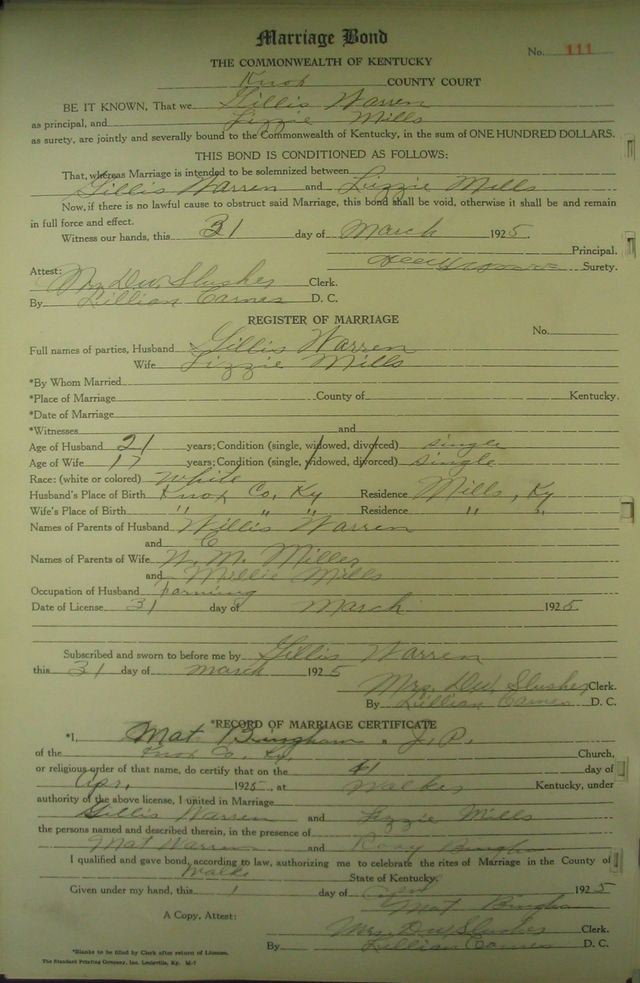 Marriage Bond
No. 111
THE COMMONWEALTH OF KENTUCKY
Knox COUNTY COURT
BE IT KNOWN, That we Gillis Warren
as principal, and Lizzie Mills
as surety, are jointly and severally bound to the Commonwealth of Kentucky, in the sum of ONE HUNDRED DOLLARS.
THIS BOND IS CONDITIONED AS FOLLOWS:
That, whereas Marriage is intended to be solemnized between
Gillis Warren and Lizzie Mills
Now, if there is no lawful cause to obstruct said Marriage, this bond shall be void, otherwise it shall be and remain
in full force and effect.
Witness our hands, this 31 day of March 1925.
Principal.
Attest: Surety.
Mrs. D.W. Slusher Clerk.
By Lillian Carnes D. C.
REGISTER OF MARRIAGE
No.
Full names of parties, Husband Gillis Warren
Wife Lizzie Mills
*By Whom Married
*Place of Marriage County of Kentucky.
*Date of Marriage
*Witnesses and
Age of Husband 21 years; Condition (single, widowed, divorced) single
Age of Wife 17 years; Condition (single, widowed, divorced) single
Race: (white or colored) White
Husband's Place of Birth Knox Co, Ky Residence Mills, Ky
Wife's Place of Birth " " " Residence " "
Names of Parents of Husband Willis Warren
and C
Names of Parents of Wife W. M. Mills
and Millie Mills
Occupation of Husband Farming
Date of License 31 day of March 1925.
Subscribed and sworn to before me by Gillis Warren
this 31 day of March 1925
Mrs. D.W. Slusher Clerk.
By Lillian Carnes D. C.
*RECORD OF MARRIAGE CERTIFICATE
*I, Mat Bingham, J.P.
of the Knox Co. Ky. Church,
or religious order of that name, do certify that on the day of
Apr. 1925, at Walker Kentucky, under
authority of the above license, I united in Marriage
Gillis Warren and Lizzie Mills
the persons named and described therein, in the presence of
Mat Warren and Bingham
I qualified and gave bond, according to law, authorizing me to celebrate the rites of Marriage in the County of
State of Kentucky.
Given under my hand, this 1 day of April 1925
Mat Bingham
A Copy, Attest:
Mrs. D.W. Slusher Clerk.
By Lillian Carnes D. C.
*Blanks to be filled by Clerk after return of License.
The Standard Printing Company, Inc. Louisville, Ky. M-7